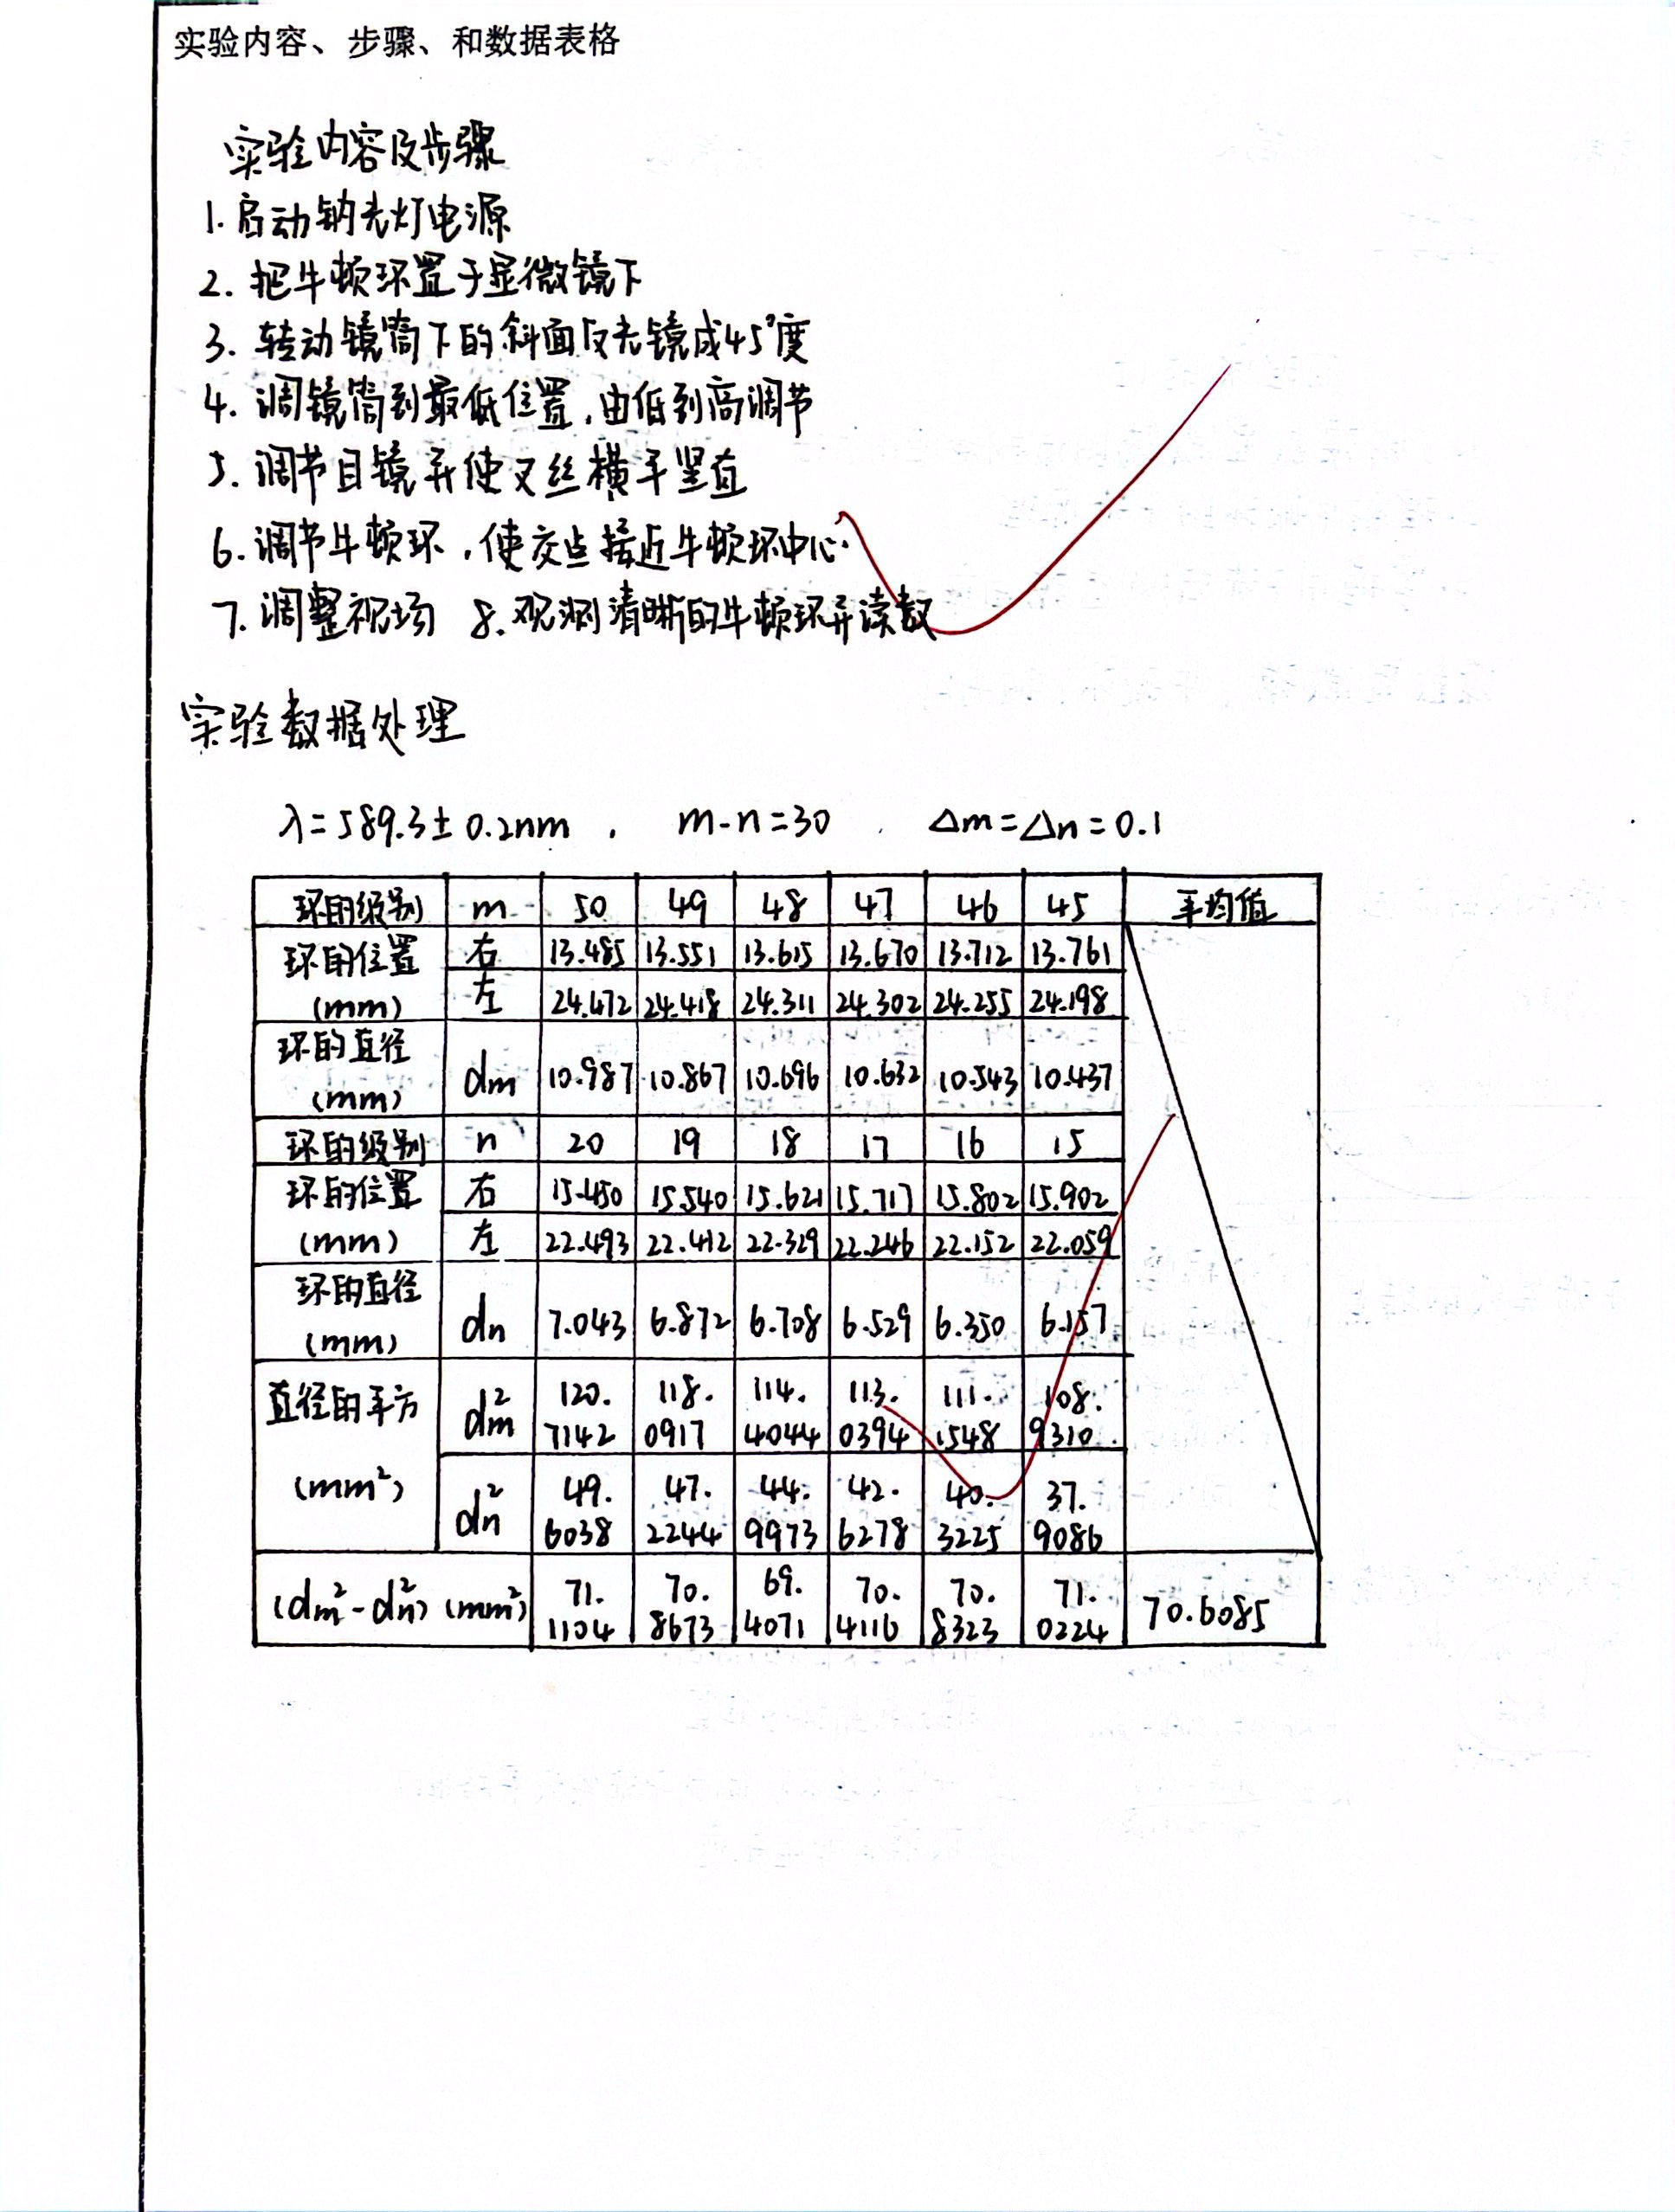 实验内容、步骤、和数据表格
实验内容及步骤
1. 启动钠光灯电源
2. 把牛顿环置于显微镜下
3. 转动镜筒下的斜面反光镜成45°度
4. 调镜筒到最低位置,由低到高调节
5. 调节目镜并使叉丝横平竖直
6. 调节牛顿环,使交点接近牛顿环中心.
7. 调整视场 8. 观测清晰的牛顿环并读数
实验数据处理
λ=589.3±0.2nm , m-n=30 , Δm=Δn=0.1
环的级别 m 50 49 48 47 46 45 平均值
环的位置(mm) 右 13.485 13.551 13.615 13.670 13.712 13.761
左 24.472 24.418 24.311 24.302 24.255 24.198
环的直径(mm) dm 10.987 10.867 10.696 10.632 10.543 10.437
环的级别 n 20 19 18 17 16 15
环的位置(mm) 右 15.450 15.540 15.621 15.717 15.802 15.902
左 22.493 22.412 22.329 22.246 22.152 22.059
环的直径(mm) dn 7.043 6.872 6.708 6.529 6.350 6.157
直径的平方(mm²) dm² 120.7142 118.0917 114.4044 113.0394 111.1548 108.9310
dn² 49.6038 47.2244 44.9973 42.6278 40.3225 37.9086
(dm²-dn²)(mm²) 71.1104 70.8673 69.4071 70.4116 70.8323 71.0224 70.6085